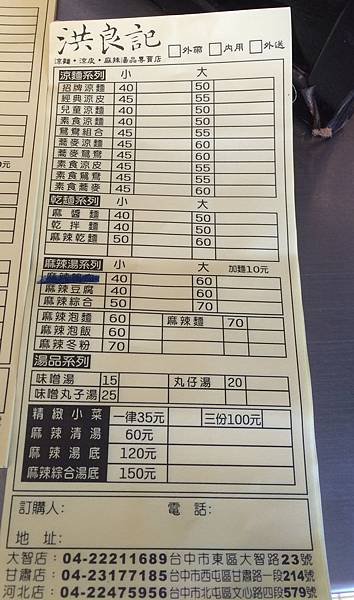 洪良記 □外帶 □內用 □外送
涼麵‧涼皮‧麻辣湯品專賣店
涼麵系列 小 大
招牌涼麵 40 50
經典涼皮 45 55
兒童涼麵 40
素食涼麵 40 50
鴛鴦組合 45 55
蕎麥涼麵 45 60
蕎麥鴛鴦 45 60
素食涼皮 45 55
素食鴛鴦 45 55
素食蕎麥 45 60
乾麵系列 小 大
麻醬麵 40 50
乾拌麵 40 50
麻辣乾麵 50 60
麻辣湯系列 小 大 加麵10元
麻辣鴨血 40 60
麻辣豆腐 40 60
麻辣綜合 50 70
麻辣泡麵 60 麻辣麵 70
麻辣泡飯 60
麻辣冬粉 70
湯品系列
味噌湯 15 丸仔湯 20
味噌丸子湯 25
精緻小菜 一律35元 三份100元
麻辣清湯 60元
麻辣湯底 120元
麻辣綜合湯底 150元
訂購人: 電話:
地址:
大智店: 04-22211689 台中市東區大智路23號
甘肅店: 04-23177185 台中市西屯區甘肅路一段214號
河北店: 04-22475956 台中市北屯區文心路四段579號